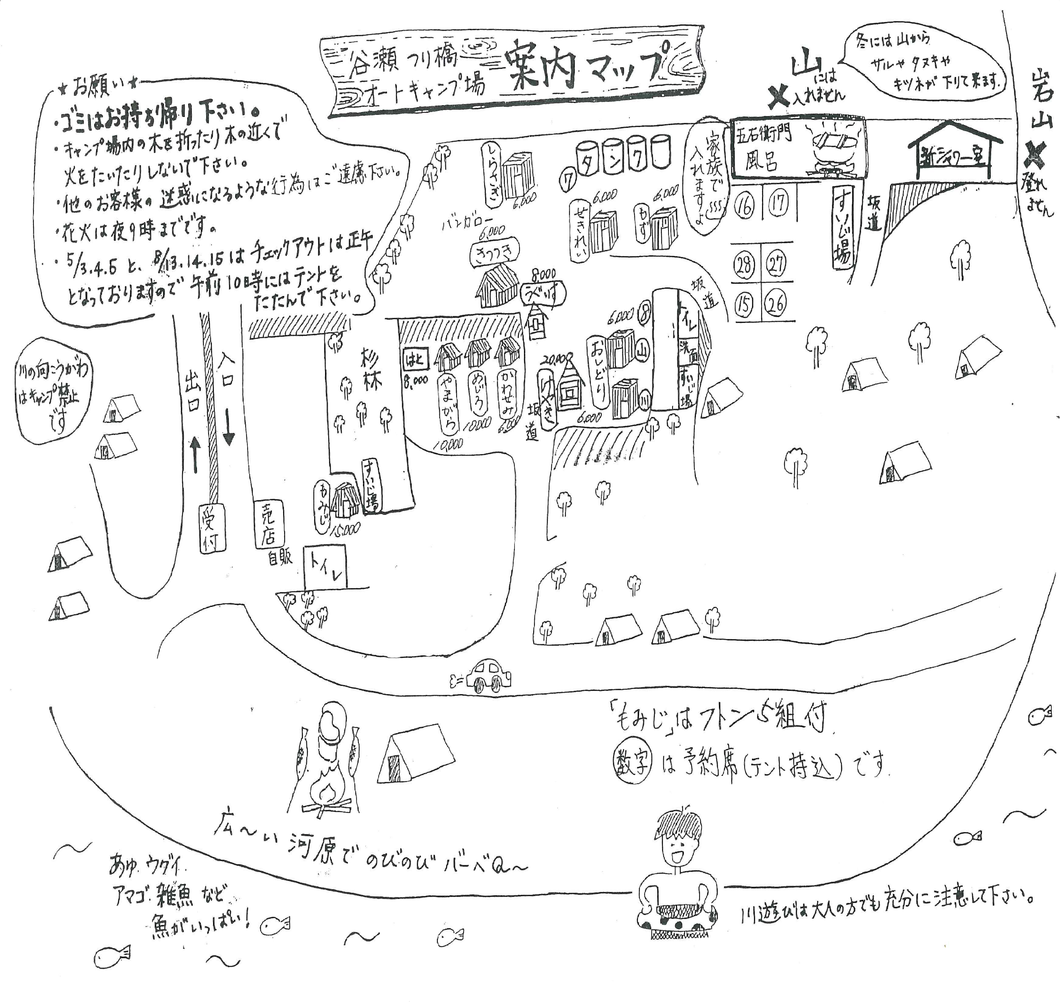 谷瀬つり橋
オートキャンプ場
案内マップ
山には
入れません
冬には山から
サルやタヌキや
キツネが下りて来ます。
岩山
登れ
ません
★お願い★
・ゴミはお持ち帰り下さい。
・キャンプ場内の木を折ったり木の近くで
火をたいたりしないで下さい。
・他のお客様の迷惑になるような行為はご遠慮下さい。
・花火は夜9時までです。
・5/3.4.5と、8/13.14.15はチェックアウトは正午
となっておりますので午前10時にはテントを
たたんで下さい。
しらさぎ
6,000
タンク
⑦
家族で
入れますよ
五右衛門
風呂
新シャワー室
バンガロー
6,000
きつつき
せきれい
6,000
もず
6,000
⑯
⑰
㉘
㉗
⑮
㉖
すいじ場
坂道
8,000
うぐいす
坂道
トイレ
洗面
すいじ場
6,000
⑧
おしどり
山
川
6,000
20,000
けやき
坂道
杉林
はと
8,000
やまがら
10,000
めじろ
10,000
かわせみ
入口
出口
川の向こうがわ
はキャンプ禁止
です
受付
売店
自販
もみじ
15,000
すいじ場
トイレ
「もみじ」はフトン5組付
数字は予約席(テント持込)です。
広〜い河原でのびのびバーベQ〜
あゆ.ウグイ.
アマゴ.雑魚など
魚がいっぱい!
川遊びは大人の方でも充分に注意して下さい。